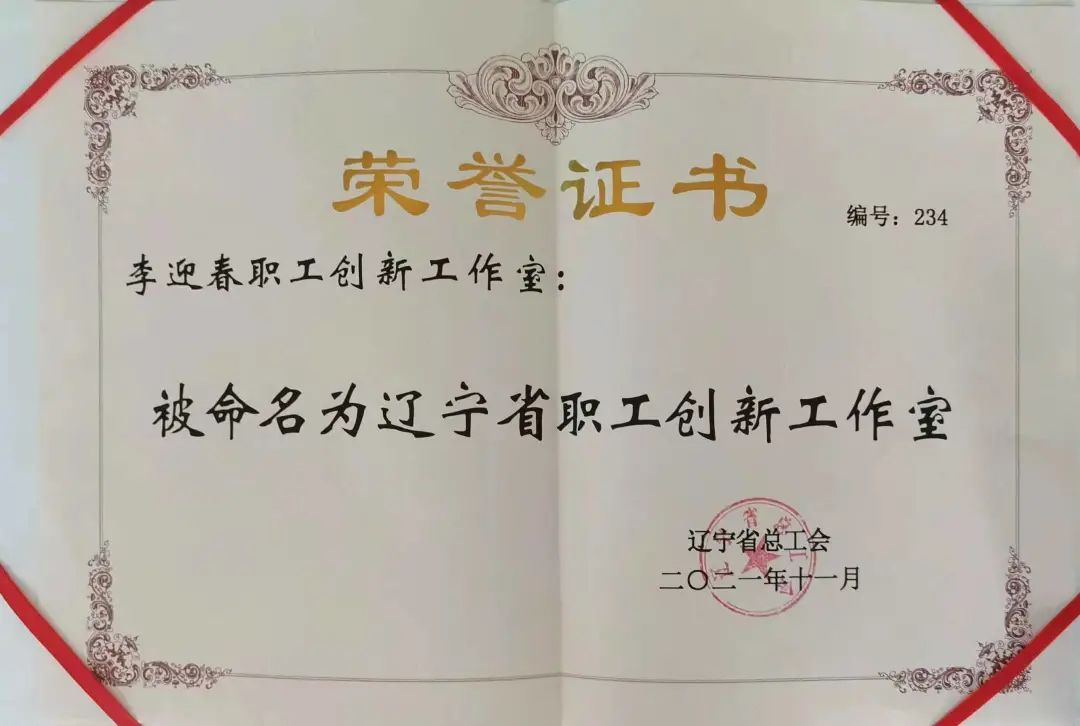 荣誉证书
编号：234
李迎春职工创新工作室：
被命名为辽宁省职工创新工作室
辽宁省总工会
二〇二一年十一月